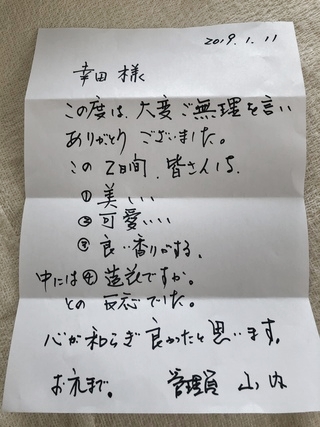 2019.1.11
幸田 様
この度は、大変ご無理を言い
ありがとうございました。
この2日間、皆さんは、
①美しい
②可愛いい
③良い香りがする。
中には④造花ですか。
との反応でした。
心が和らぎ良かったと思います。
お礼まで。 管理員 山内